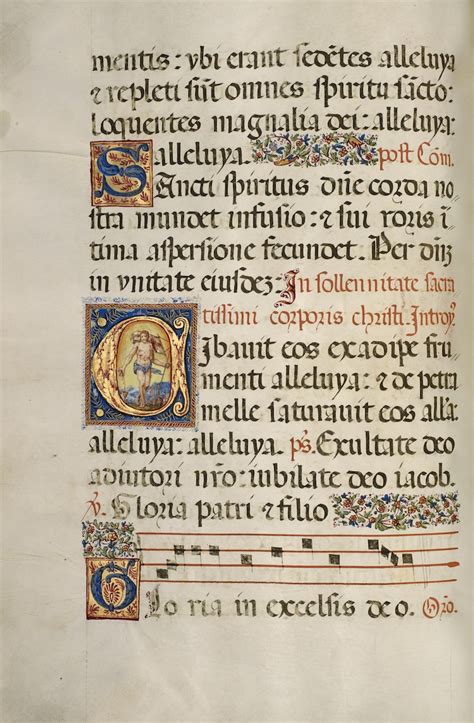 mentis: vbi erant sedētes alleluya
⁊ repleti sūt omnes spiritu sācto:
loquentes magnalia dei: alleluya:
alleluya. post Cōm.
Sancti spiritus dn̄e corda no
stra mundet infusio: ⁊ sui roris ī
tima aspersione fecundet. Per dn̄ʒ
in vnitate eiusdeʒ. In sollennitate sacra
tissimi corporis christi. Introy.
Cibauit eos ex adipe fru
menti alleluya: ⁊ de petra
melle saturauit eos alľa
alleluya: alleluya. ps. Exultate deo
adiutori nr̄o: iubilate deo iacob.
℣. Gloria patri ⁊ filio
Glo ria in excelsis deo. Or̄o.